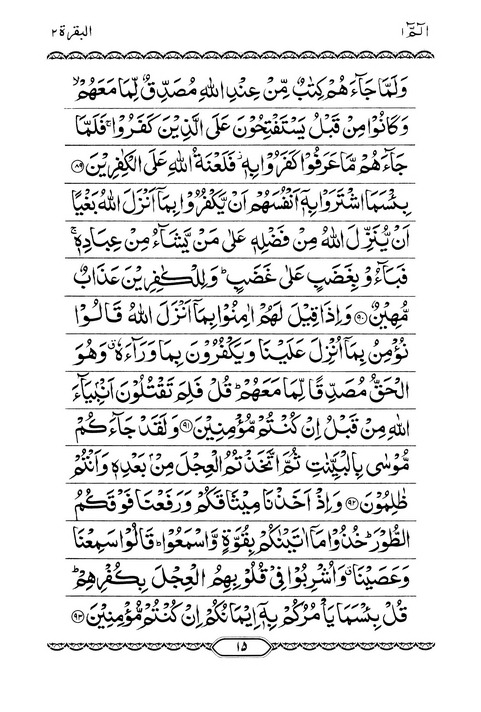 الٓمّٓ ١
البقرة ٢
وَلَمَّا جَآءَهُمْ كِتٰبٌ مِّنْ عِنْدِ اللّٰهِ مُصَدِّقٌ لِّمَا مَعَهُمْ ۙ
وَكَانُوْا مِنْ قَبْلُ يَسْتَفْتِحُوْنَ عَلَى الَّذِيْنَ كَفَرُوْا ۚ فَلَمَّا
جَآءَهُمْ مَّا عَرَفُوْا كَفَرُوْا بِهٖ ۫ فَلَعْنَةُ اللّٰهِ عَلَى الْكٰفِرِيْنَ ﴿۸۹﴾
بِئْسَمَا اشْتَرَوْا بِهٖٓ اَنْفُسَهُمْ اَنْ يَّكْفُرُوْا بِمَآ اَنْزَلَ اللّٰهُ بَغْيًا
اَنْ يُّنَزِّلَ اللّٰهُ مِنْ فَضْلِهٖ عَلٰى مَنْ يَّشَآءُ مِنْ عِبَادِهٖ ۚ
فَبَآءُوْ بِغَضَبٍ عَلٰى غَضَبٍ ؕ وَلِلْكٰفِرِيْنَ عَذَابٌ
مُّهِيْنٌ ﴿۹۰﴾ وَاِذَا قِيْلَ لَهُمْ اٰمِنُوْا بِمَآ اَنْزَلَ اللّٰهُ قَالُوْا
نُؤْمِنُ بِمَآ اُنْزِلَ عَلَيْنَا وَيَكْفُرُوْنَ بِمَا وَرَآءَهٗ ۗ وَهُوَ
الْحَقُّ مُصَدِّقًا لِّمَا مَعَهُمْ ؕ قُلْ فَلِمَ تَقْتُلُوْنَ اَنْۢبِيَآءَ
اللّٰهِ مِنْ قَبْلُ اِنْ كُنْتُمْ مُّؤْمِنِيْنَ ﴿۹۱﴾ وَلَقَدْ جَآءَكُمْ
مُّوْسٰى بِالْبَيِّنٰتِ ثُمَّ اتَّخَذْتُمُ الْعِجْلَ مِنْۢ بَعْدِهٖ وَاَنْتُمْ
ظٰلِمُوْنَ ﴿۹۲﴾ وَاِذْ اَخَذْنَا مِيْثَاقَكُمْ وَرَفَعْنَا فَوْقَكُمُ
الطُّوْرَ ؕ خُذُوْا مَآ اٰتَيْنٰكُمْ بِقُوَّةٍ وَّاسْمَعُوْا ؕ قَالُوْا سَمِعْنَا
وَعَصَيْنَا ۗ وَاُشْرِبُوْا فِيْ قُلُوْبِهِمُ الْعِجْلَ بِكُفْرِهِمْ ؕ
قُلْ بِئْسَمَا يَاْمُرُكُمْ بِهٖٓ اِيْمَانُكُمْ اِنْ كُنْتُمْ مُّؤْمِنِيْنَ ﴿۹۳﴾
۱۵